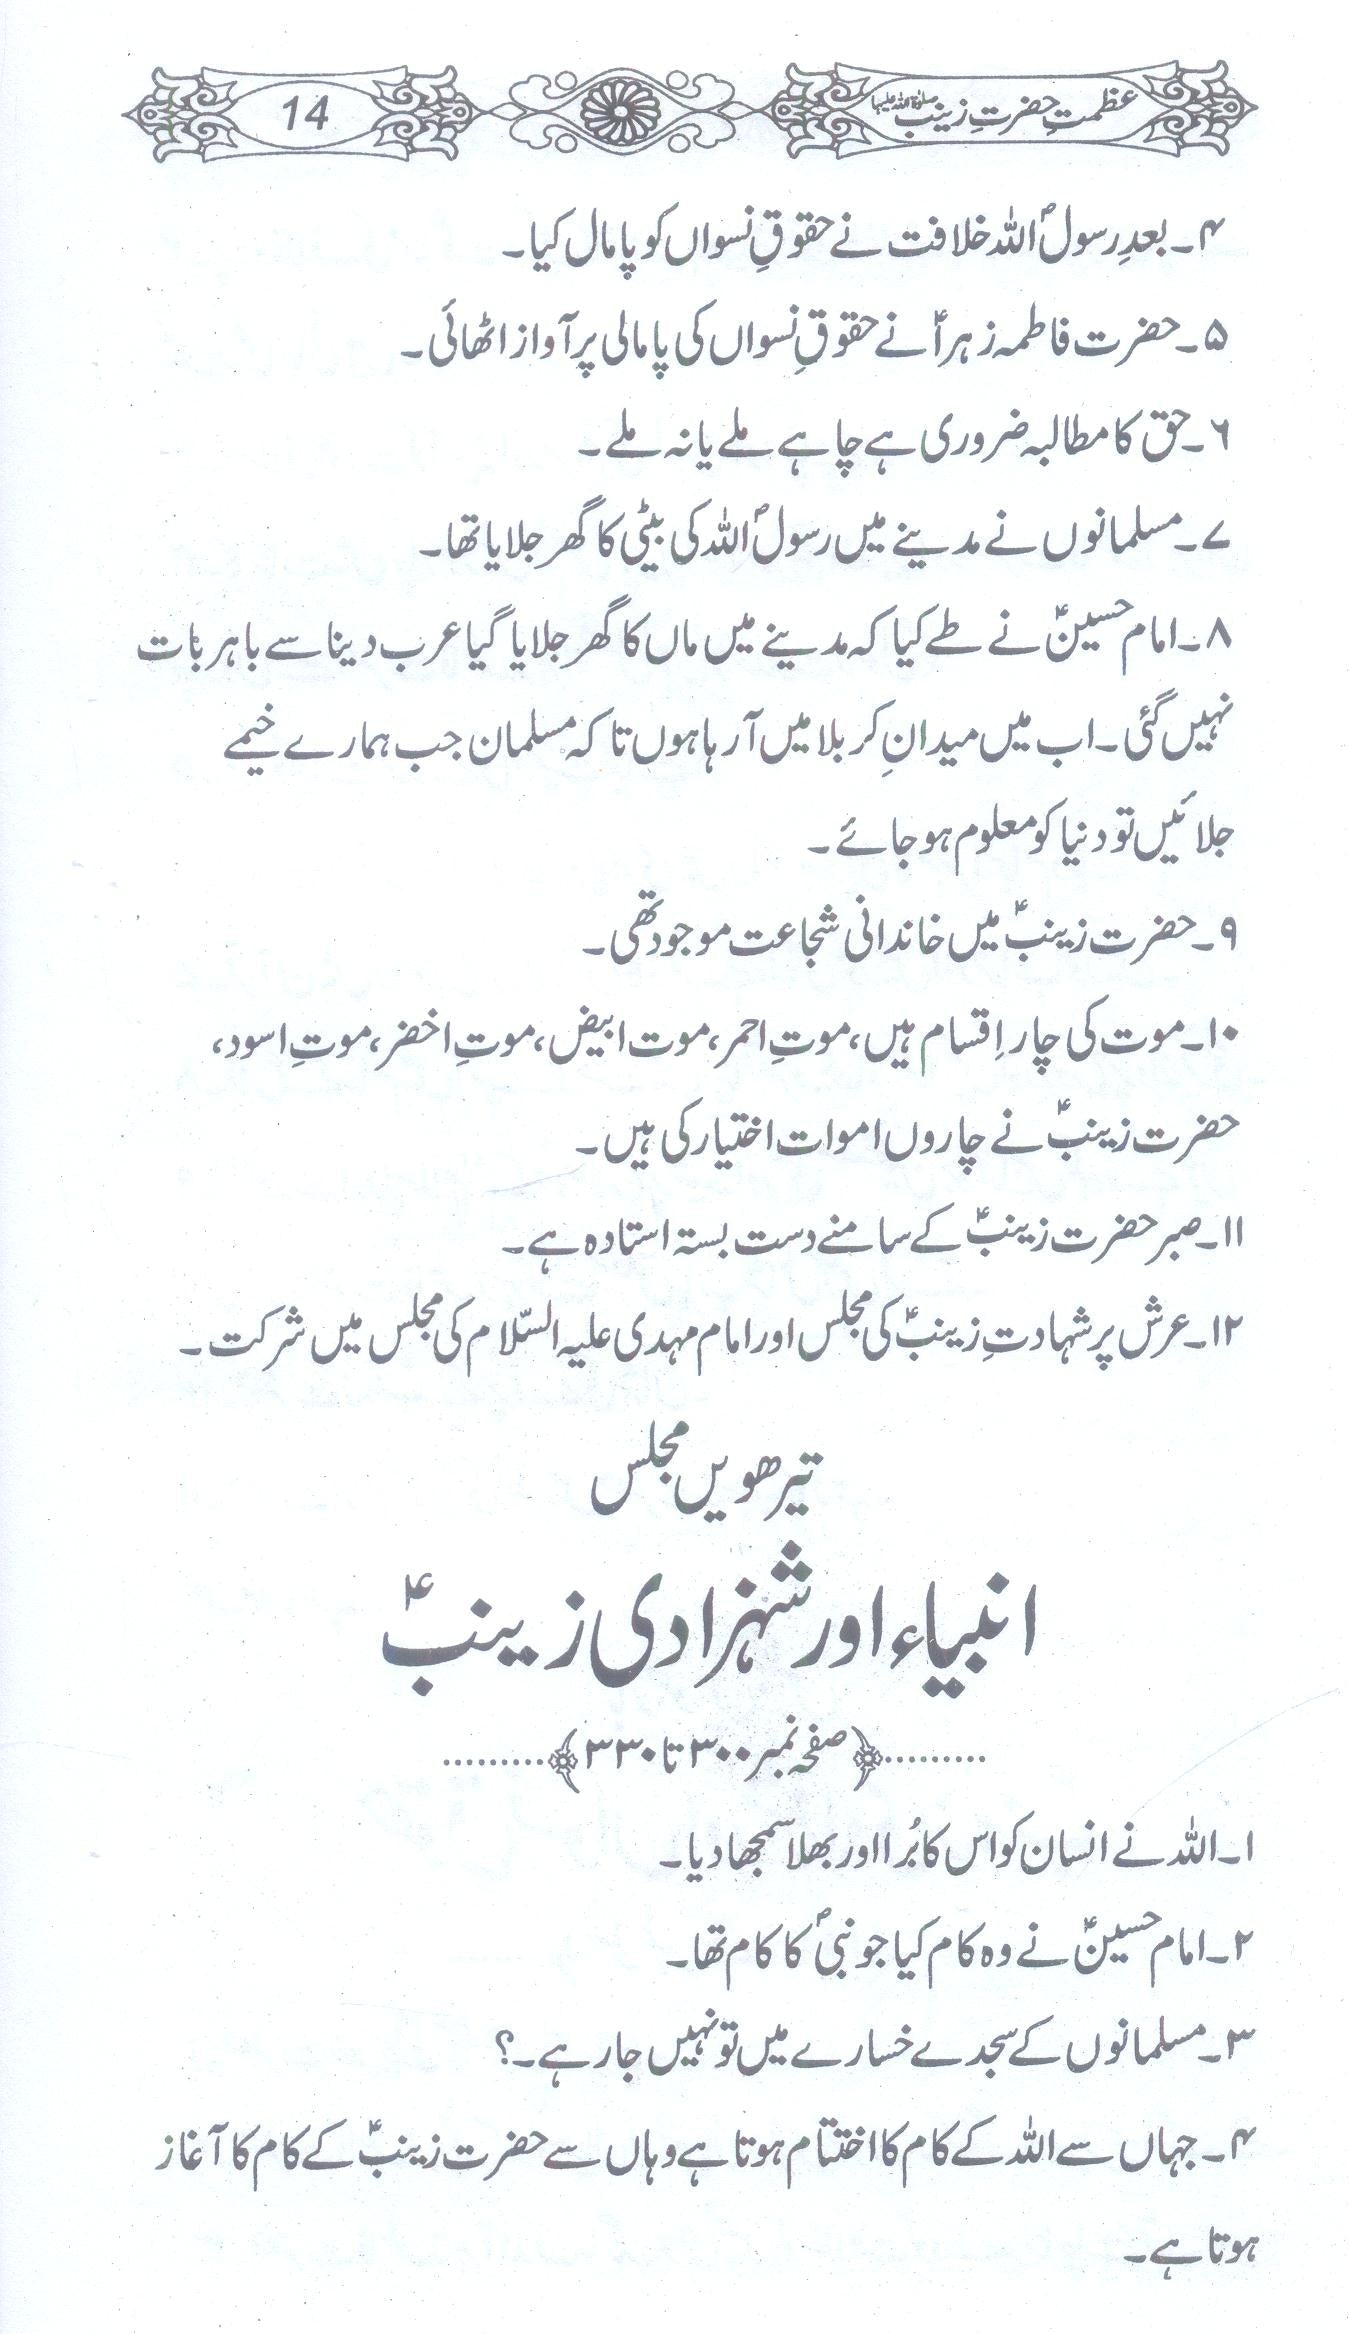 عظمتِ حضرتِ زینب صلوٰۃ اللہ علیہا
14
۴۔ بعدِ رسولؐ اللہ خلافت نے حقوقِ نسواں کو پامال کیا۔
۵۔ حضرت فاطمہ زہراؑ نے حقوقِ نسواں کی پامالی پر آواز اٹھائی۔
۶۔ حق کا مطالبہ ضروری ہے چاہے ملے یا نہ ملے۔
۷۔ مسلمانوں نے مدینے میں رسولؐ اللہ کی بیٹی کا گھر جلایا تھا۔
۸۔ امام حسینؑ نے طے کیا کہ مدینے میں ماں کا گھر جلایا گیا عرب دینا سے باہر بات
نہیں گئی۔ اب میں میدانِ کربلا میں آرہا ہوں تا کہ مسلمان جب ہمارے خیمے
جلائیں تو دنیا کو معلوم ہو جائے۔
۹۔ حضرت زینبؑ میں خاندانی شجاعت موجود تھی۔
۱۰۔ موت کی چار اِقسام ہیں، موتِ احمر، موت ابیض، موتِ اخضر، موتِ اسود،
حضرت زینبؑ نے چاروں اموات اختیار کی ہیں۔
۱۱۔ صبر حضرت زینبؑ کے سامنے دست بستہ استادہ ہے۔
۱۲۔ عرش پر شہادتِ زینبؑ کی مجلس اور امام مہدی علیہ السّلام کی مجلس میں شرکت۔
تیرھویں مجلس
انبیاء اور شہزادی زینبؑ
.........﴿صفحہ نمبر ۳۰۰ تا ۳۳۰﴾.........
۱۔ اللہ نے انسان کو اس کا بُرا اور بھلا سمجھا دیا۔
۲۔ امام حسینؑ نے وہ کام کیا جو نبیؐ کا کام تھا۔
۳۔ مسلمانوں کے سجدے خسارے میں تو نہیں جارہے۔؟
۴۔ جہاں سے اللہ کے کام کا اختتام ہوتا ہے وہاں سے حضرت زینبؑ کے کام کا آغاز
ہوتا ہے۔